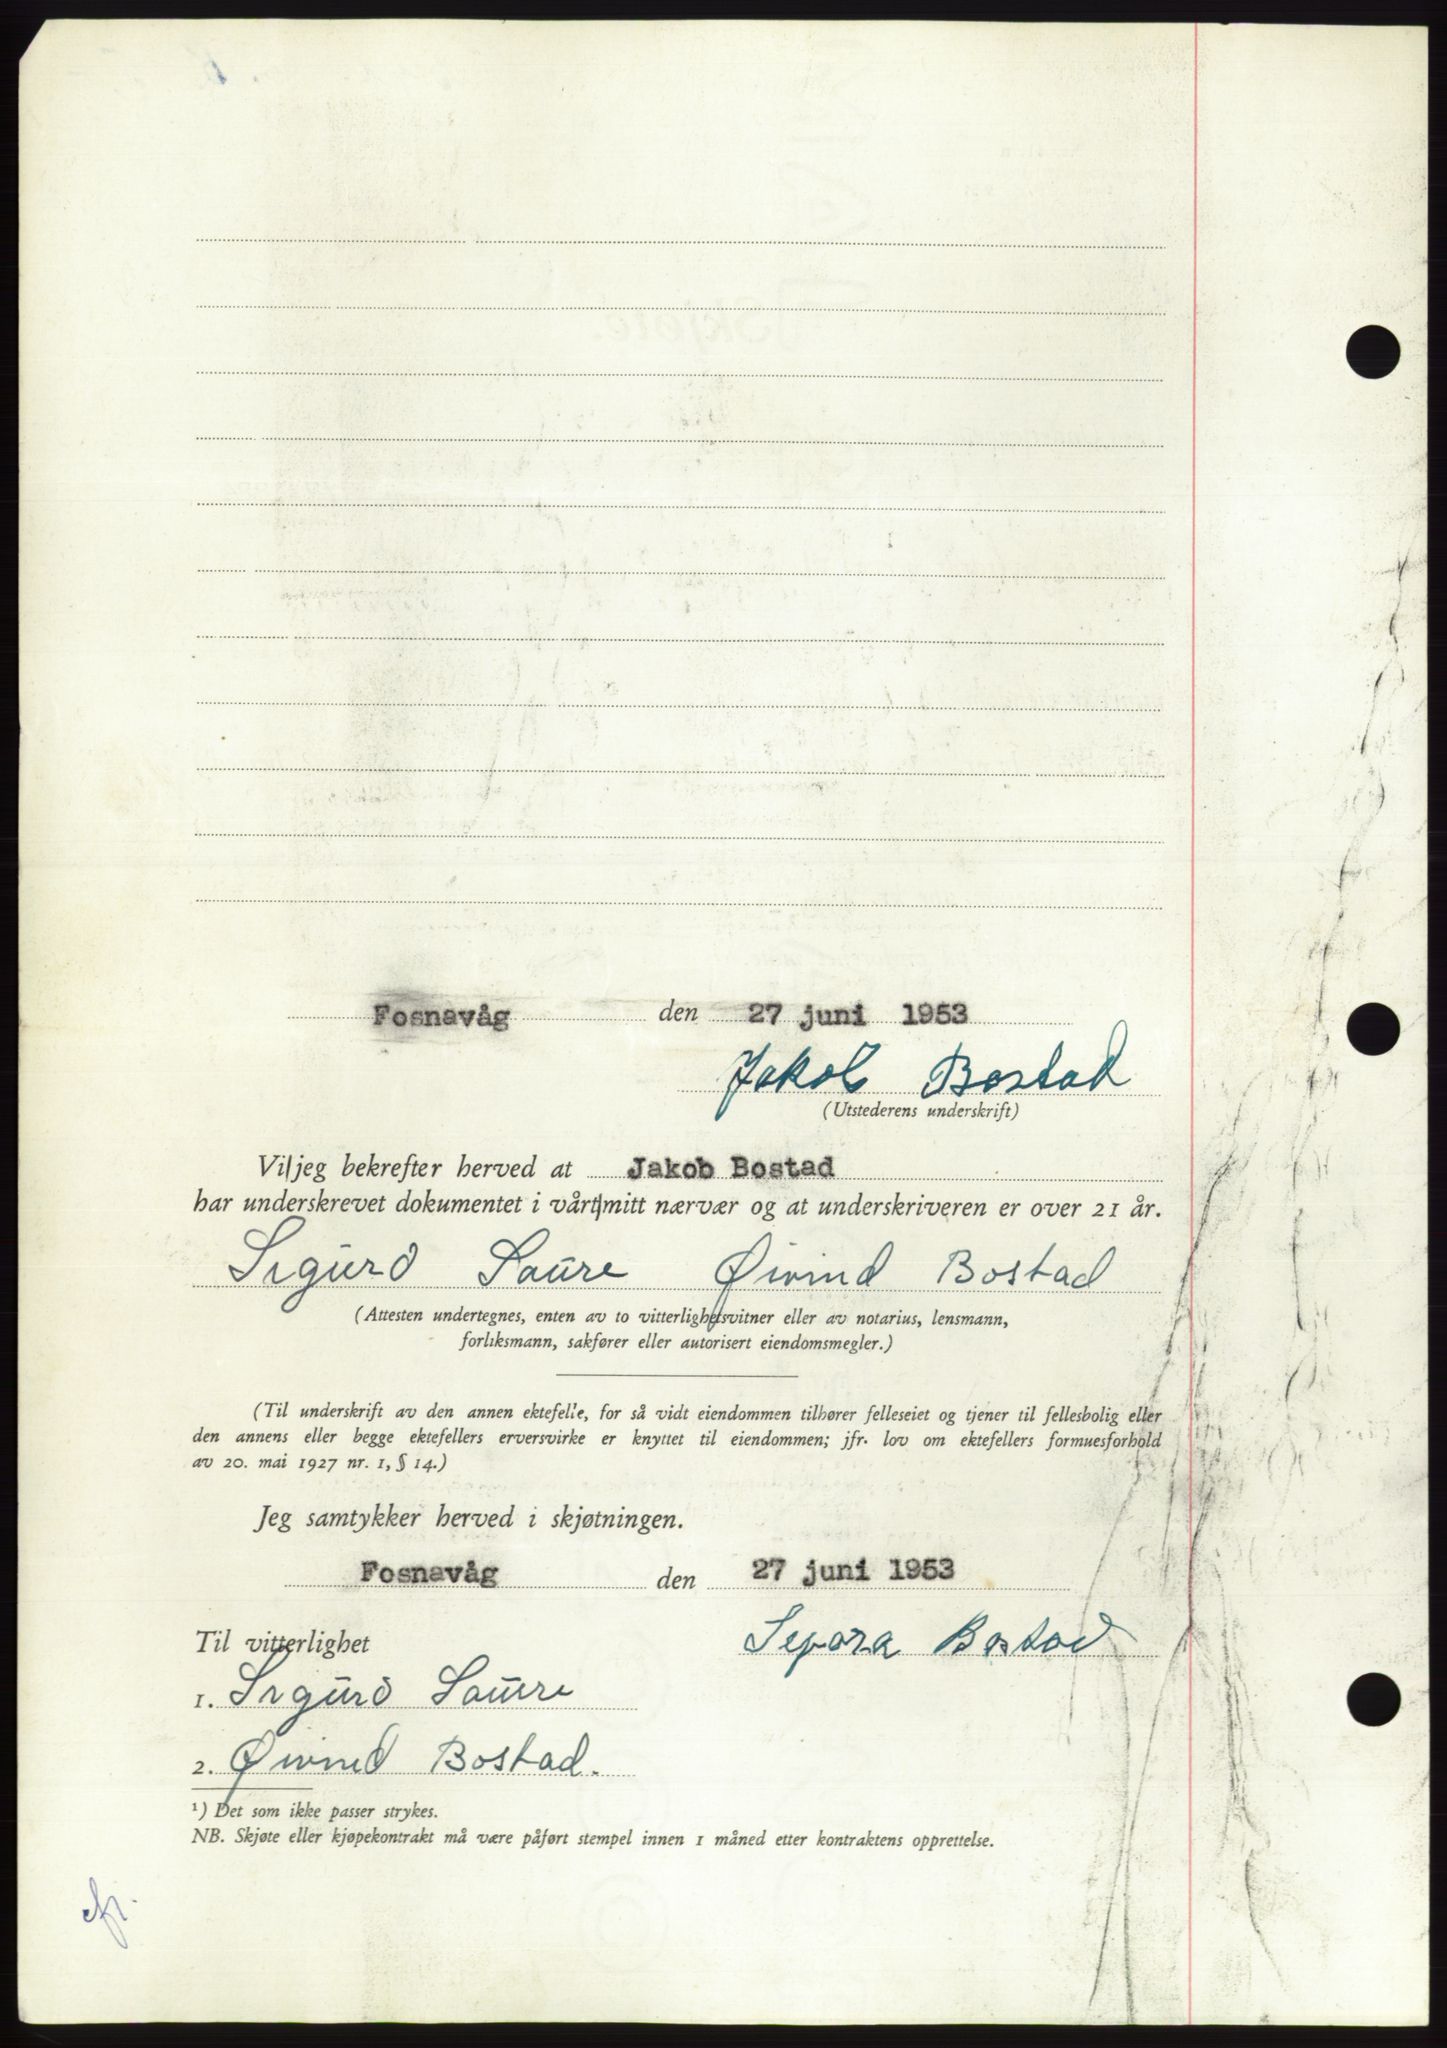 Fosnavåg den 27 juni 1953
Jakob Bostad
(Utstederens underskrift)
Vi/jeg bekrefter herved at Jakob Bostad
har underskrevet dokumentet i vårt/mitt nærvær og at underskriveren er over 21 år.
Sigurd Saure Øivind Bostad
(Attesten undertegnes, enten av to vitterlighetsvitner eller av notarius, lensmann,
forliksmann, sakfører eller autorisert eiendomsmegler.)
(Til underskrift av den annen ektefelle, for så vidt eiendommen tilhører felleseiet og tjener til fellesbolig eller
den annens eller begge ektefellers erversvirke er knyttet til eiendommen; jfr. lov om ektefellers formuesforhold
av 20. mai 1927 nr. 1, § 14.)
Jeg samtykker herved i skjøtningen.
Fosnavåg den 27 juni 1953
Til vitterlighet Sepora Bostad
1. Sigurd Saure
2. Øivind Bostad.
¹) Det som ikke passer strykes.
NB. Skjøte eller kjøpekontrakt må være påført stempel innen 1 måned etter kontraktens opprettelse.